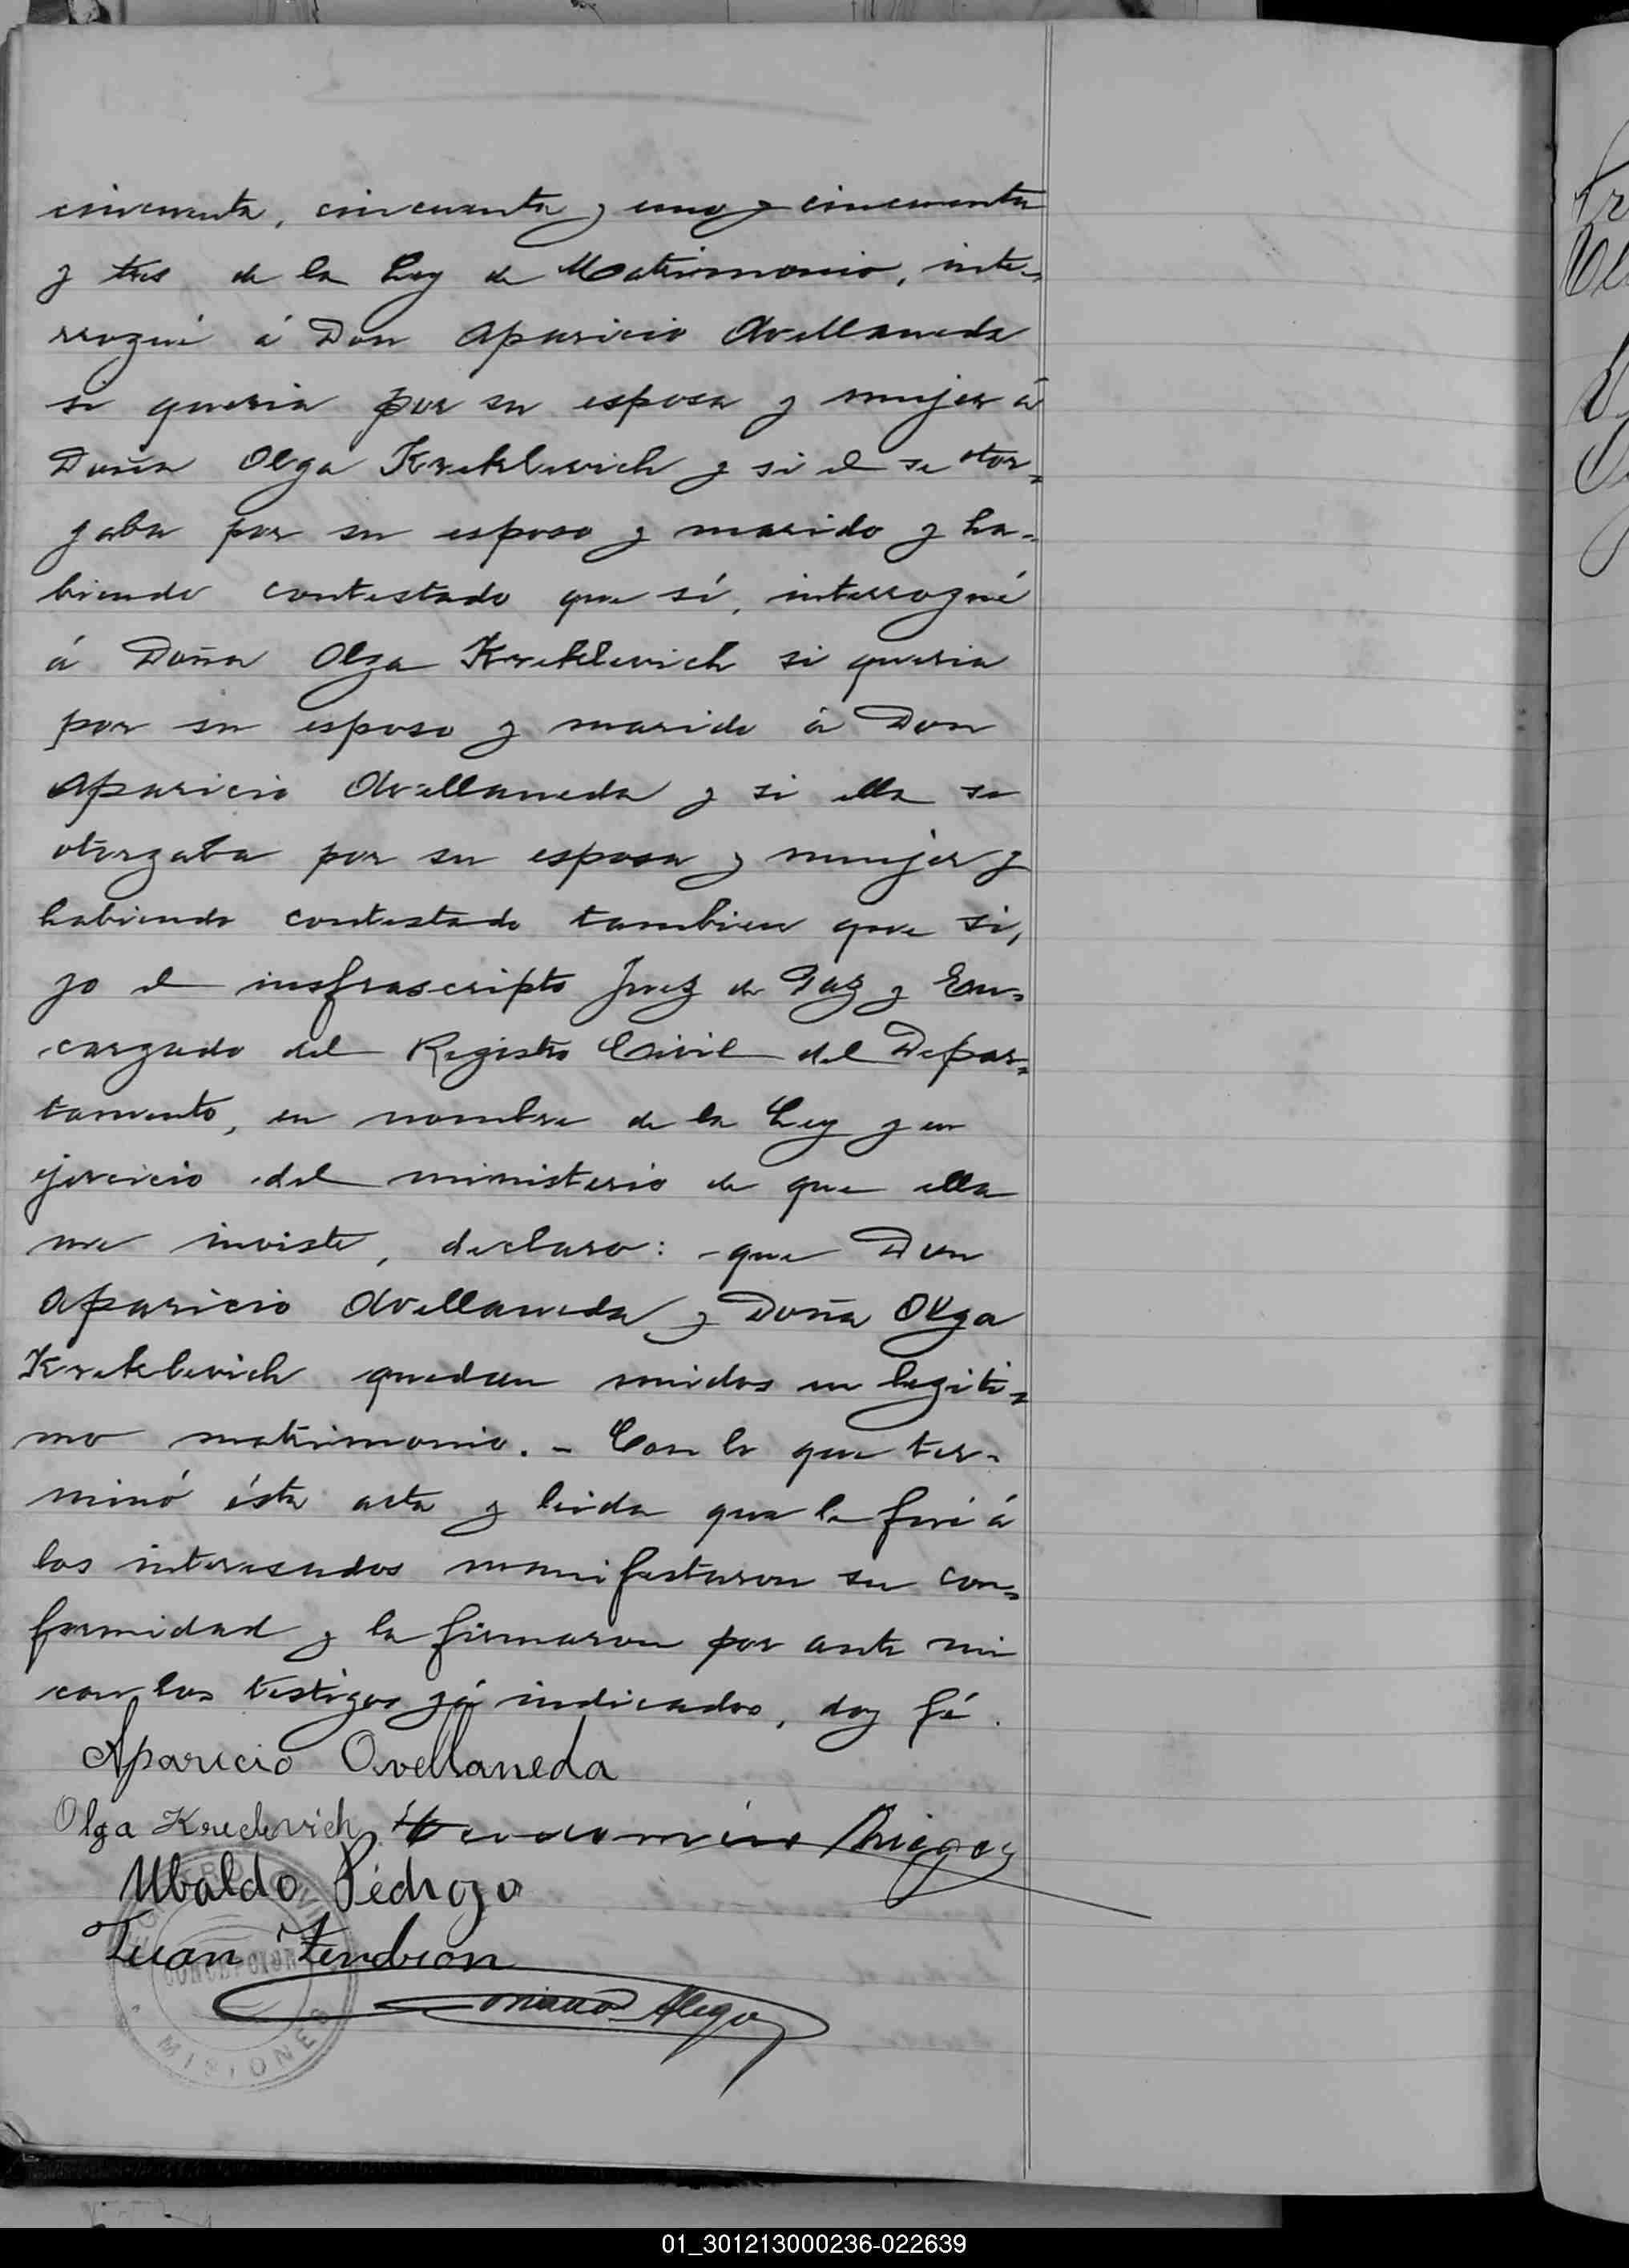 cincuenta, cincuenta y uno y cincuenta
y tres de la Ley de Matrimonio, inte-
rrogué á Don Aparicio Avellaneda
si queria por su esposa y mujer á
Doña Olga Kreklevich y si el se otor-
gaba por su esposo y marido y ha-
biendo contestado que sí, interrogué
á Doña Olga Kreklevich si queria
por su esposo y marido á Don
Aparicio Avellaneda y si ella se
otorgaba por su esposa y mujer y
habiendo contestado tambien que si,
yo el insfrascripto Juez de Paz y En-
cargado del Registro Civil del Depar-
tamento, en nombre de la Ley y en
ejercicio del ministerio de que ella
me inviste, declaro: - que Don
Aparicio Avellaneda y Doña Olga
Kreklevich quedan unidos en legiti-
mo matrimonio. - Con lo que ter-
minó ésta acta y leida que le fué á
los interesados manifestaron su con-
formidad y la firmaron por ante mi
con los testigos yá indicados, doy fé.
Aparicio Avellaneda
Olga Kreclevich
Ubaldo Pédrozo
Juan
CONCEPCION
MISIONES
01_301213000236-022639